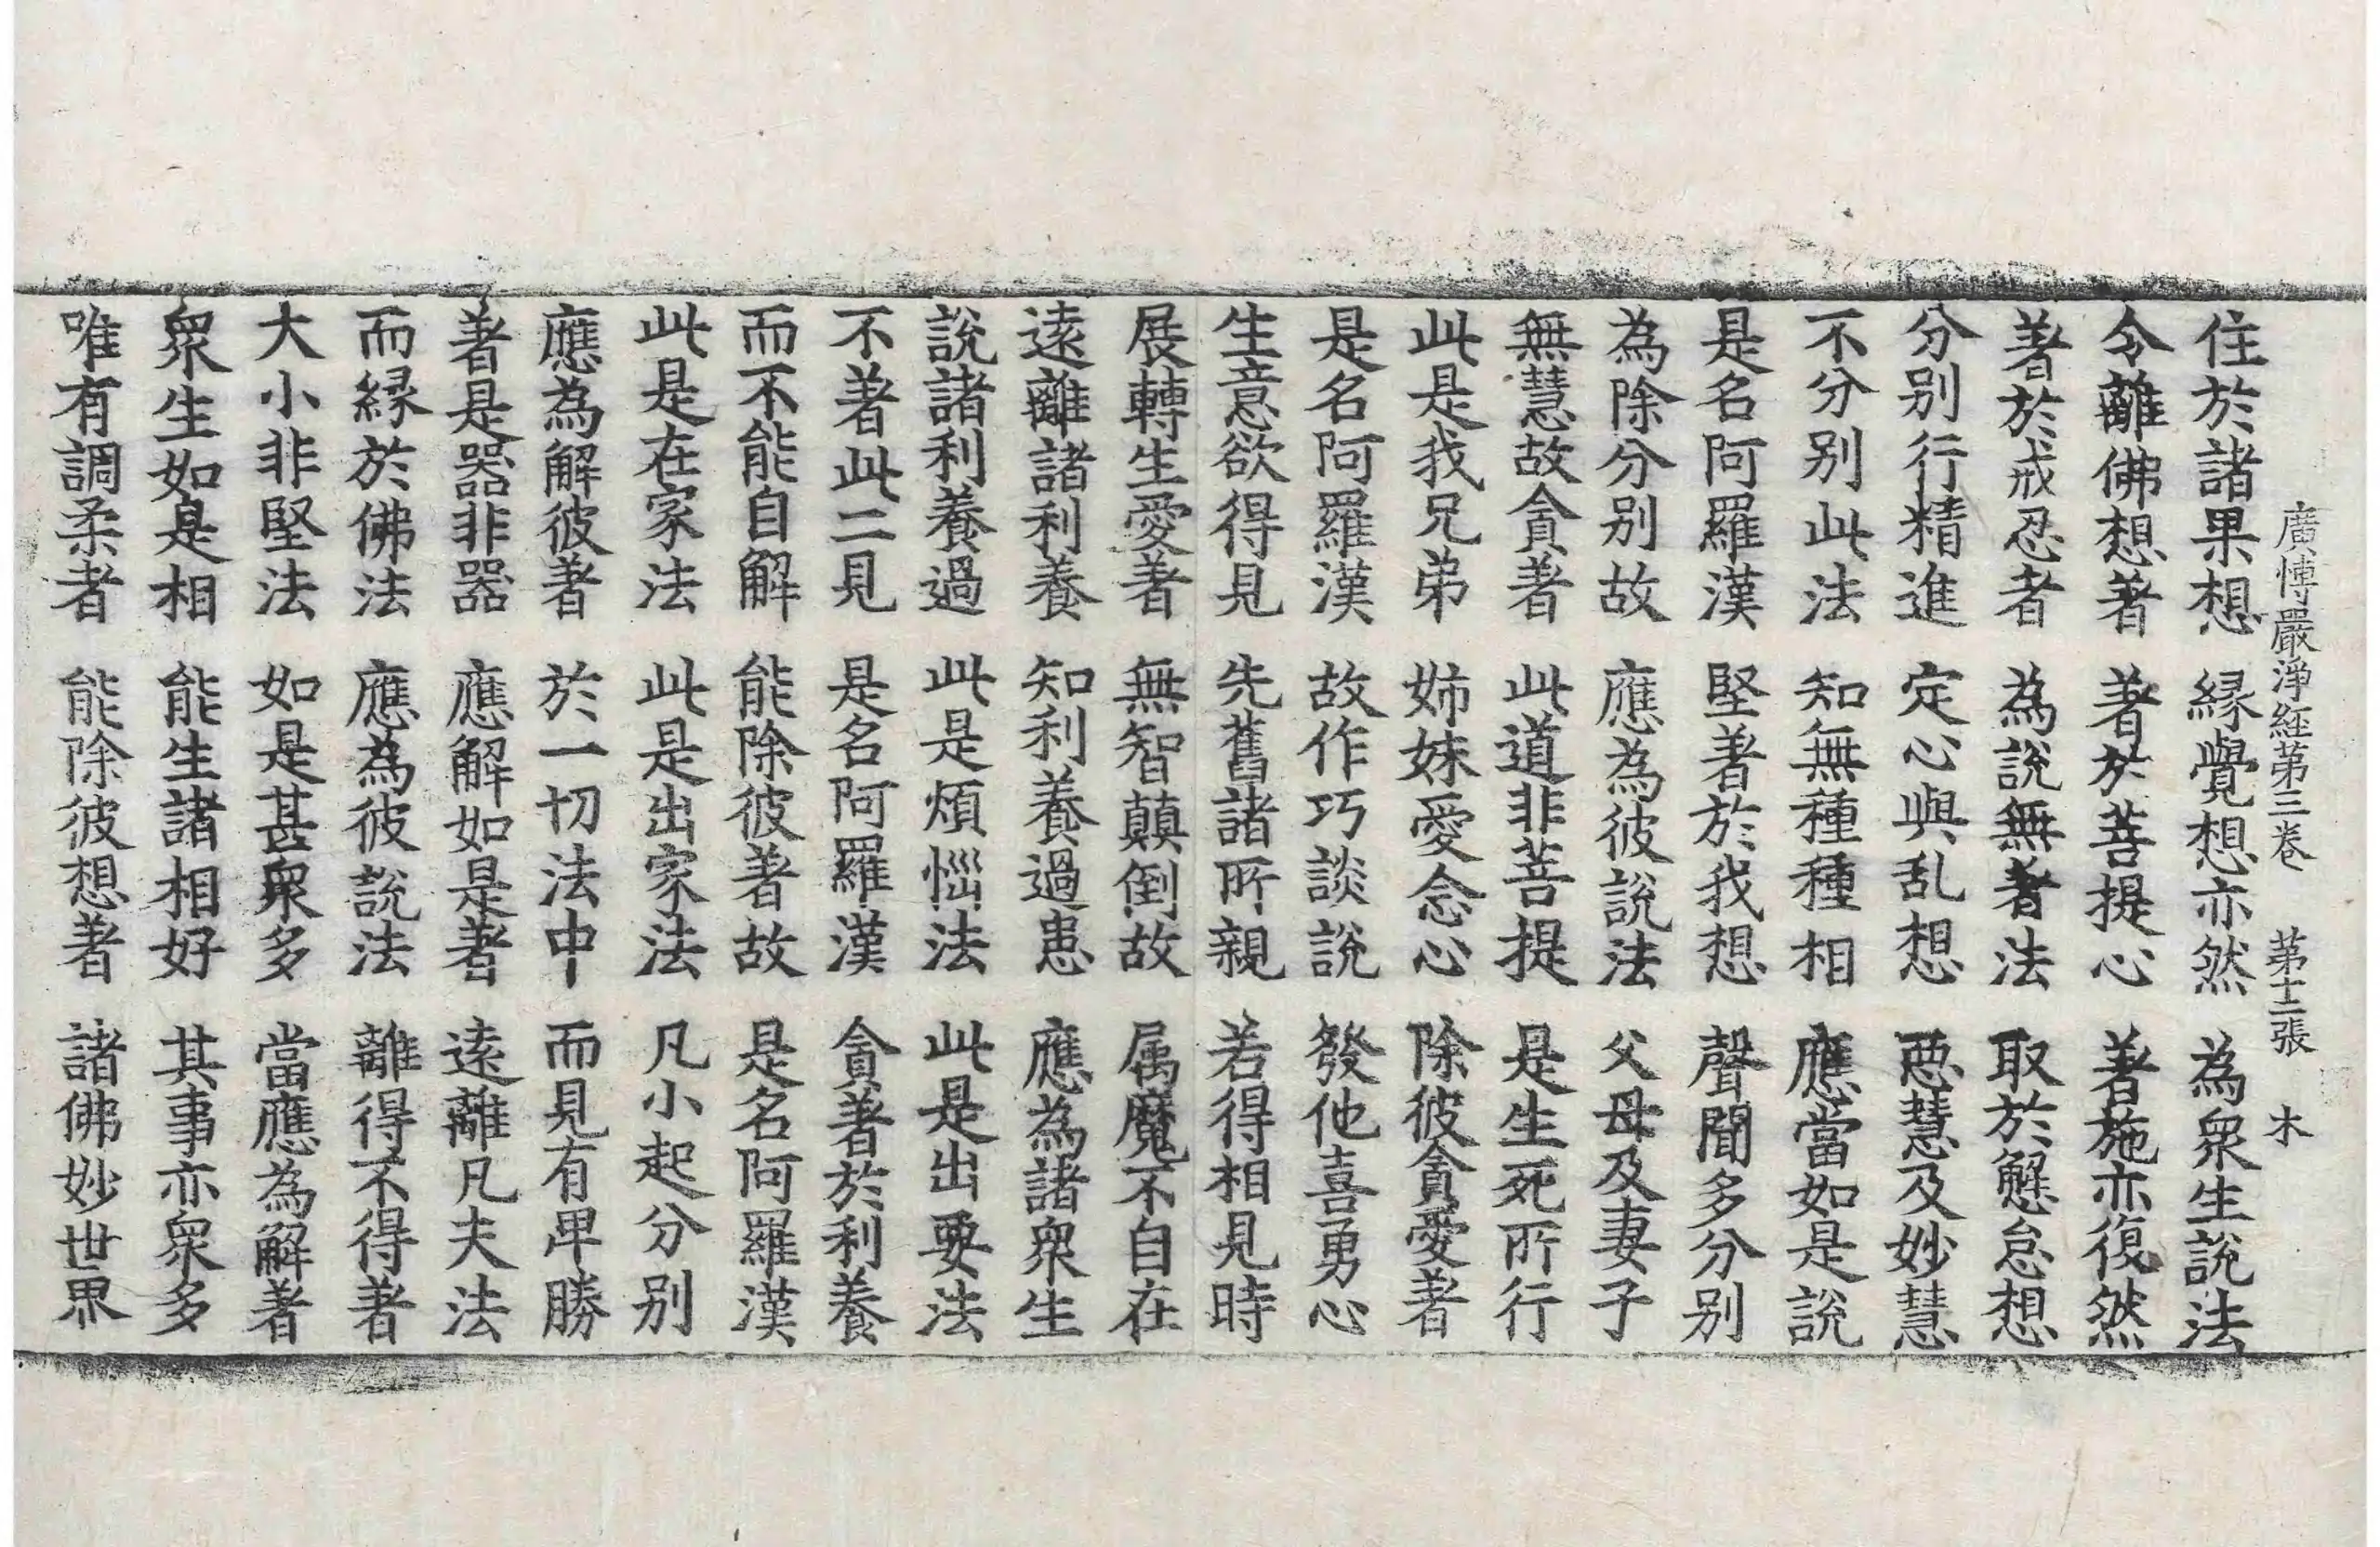 廣愽嚴淨經第三卷　第十二張　木
住於諸果想　縁覺想亦然　為衆生說法
令離佛想著　著於菩提心　著施亦復然
著於戒忍者　為說無著法　取於懈怠想
分别行精進　定心與乱想　惡慧及妙慧
不分别此法　知無種種相　應當如是說
是名阿羅漢　堅著於我想　聲聞多分别
為除分别故　應為彼說法　父母及妻子
無慧故貪著　此道非菩提　是生死所行
此是我兄弟　姉妹愛念心　除彼貪愛著
是名阿羅漢　故作巧談說　發他喜勇心
生意欲得見　先舊諸所親　若得相見時
展轉生愛著　無智顛倒故　属魔不自在
遠離諸利養　知利養過患　應為諸衆生
說諸利養過　此是煩惱法　此是出要法
不著此二見　是名阿羅漢　貪著於利養
而不能自解　能除彼著故　是名阿羅漢
此是在家法　此是出家法　凡小起分别
應為解彼著　於一切法中　而見有卑勝
著是器非器　應解如是著　遠離凡夫法
而縁於佛法　應為彼說法　離得不得著
大小非堅法　如是甚衆多　當應為解著
衆生如是相　能生諸相好　其事亦衆多
唯有調柔者　能除彼想著　諸佛妙世界